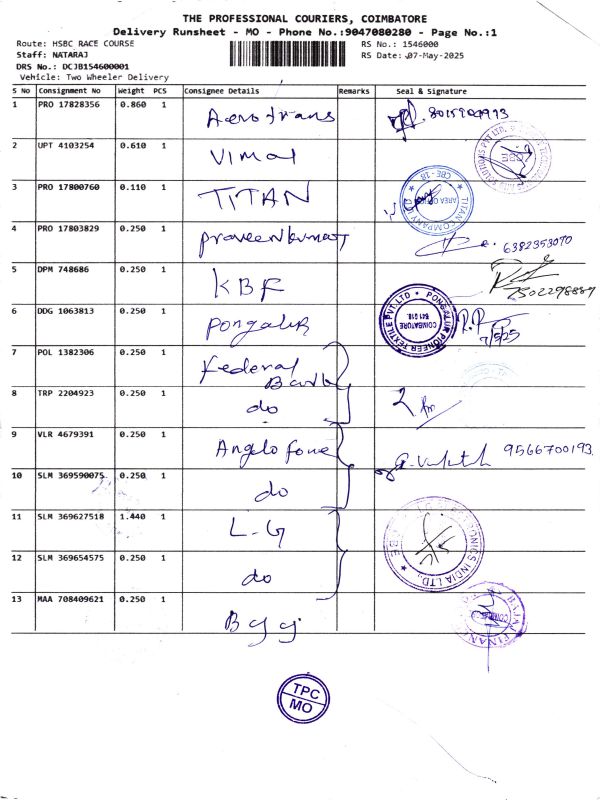 THE PROFESSIONAL COURIERS, COIMBATORE
Delivery Runsheet - MO - Phone No.:9047080280 - Page No.:1
Route: HSBC RACE COURSE
RS No.: 1546000
Staff: NATARAJ
RS Date: 07-May-2025
DRS No.: DCJB154600001
Vehicle: Two Wheeler Delivery
S No Consignment No Weight PCS Consignee Details Remarks Seal & Signature
1 PRO 17828356 0.860 1 Aerotrans
2 UPT 4103254 0.610 1 Vimal
3 PRO 17800760 0.110 1 TITAN
CBE-18
AREA OFFICE
TITAN COMPANY
4 PRO 17803829 0.250 1 Praveenkumar 6382353070
5 DPM 748686 0.250 1 KBF
6 DDG 1063813 0.250 1 Pongalur
PONGALUR PIONEER TEXTILE PVT LTD
COIMBATORE
641 018.
R.P
7/5/25
7 POL 1382306 0.250 1 Federal Bank
8 TRP 2204923 0.250 1 do
9 VLR 4679391 0.250 1 Angelo 9566700193
10 SLM 369590075 0.250 1 do
11 SLM 369627518 1.440 1 L-G
INDIA LTD.
12 SLM 369654575 0.250 1 do
13 MAA 708409621 0.250 1
BAJAJ FINANCE
TPC
MO